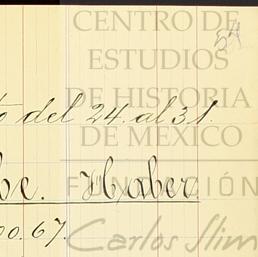 CENTRO DE
54
ESTUDIOS
DE HISTORIA
to del 24. al 31.
DE MEXICO
be. Haber
FUNDACIÓN
00. 67.
Carlos Slim